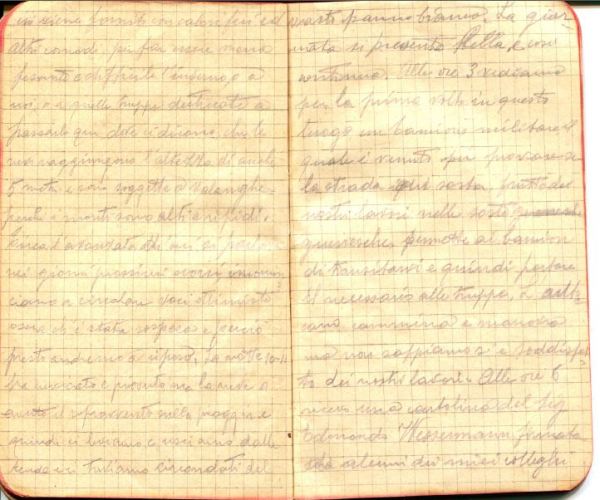 costruzione fornito con calorifero ed
altri comodi, per far essere meno
pesante e difficile l'inverno, o a
noi, o a quelle truppe destinate a
passarlo qui dove ci dicono che le
nevi raggiungono l'altezza di anche
5 metri e sono soggette a valanghe
perché i monti sono alti e ripidi.
Circa l'avanzata che noi si parlava
nei giorni prossimi scorsi incomin
ciano a circolare voci ottimiste
ossia ch'è stata sospesa e perciò
presto andremo a riposo. La notte 10-11
ha nevicato e piovuto ma la neve à
avuto il sopravvento sulla pioggia e
quindi ci leviamo e usciamo dalle
tende e ci troviamo circondati dal
vasto panno bianco. La gior
nata si presenta bella, e così
continua. Alle ore 3 vediamo
per la prima volta in questo
luogo un camion militare il
quale è venuto per provare se
la strada qui sorta, frutto dei
nostri lavori nelle soste
guerresche, permette ai camion
di transitarvi e quindi portare
il necessario alle truppe. L'
cammina e manovra
ma non sappiamo s'è soddisfat
to dei nostri lavori. Alle ore 6
ricevo una cartolina del Sig
Edmondo Wessermann, firmata
da alcuni dei miei colleghi